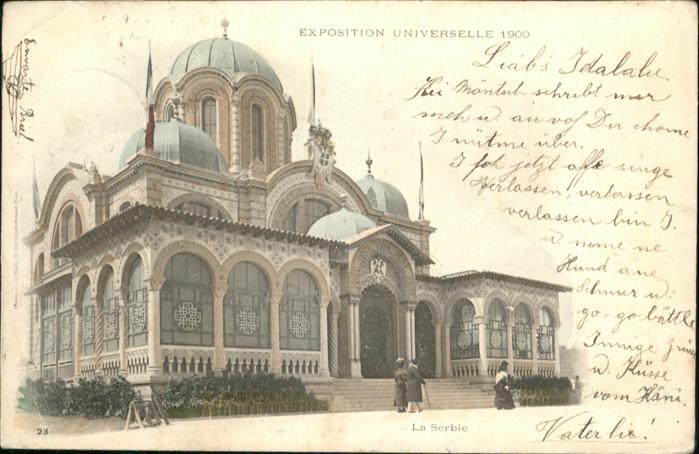 EXPOSITION UNIVERSELLE 1900
Liab's Idalalie.
Kei Möntsch schribt mer
meh u. au vo Dir chome
I nütme über.
I jetzt singe
Verlassen, verlassen
verlassen bin I.
u. nume ne
Hund ane
Schnur u.
go-go bättle
Innige
u. Küsse
vom Häni.
Vaterlie!
23
La Serbie